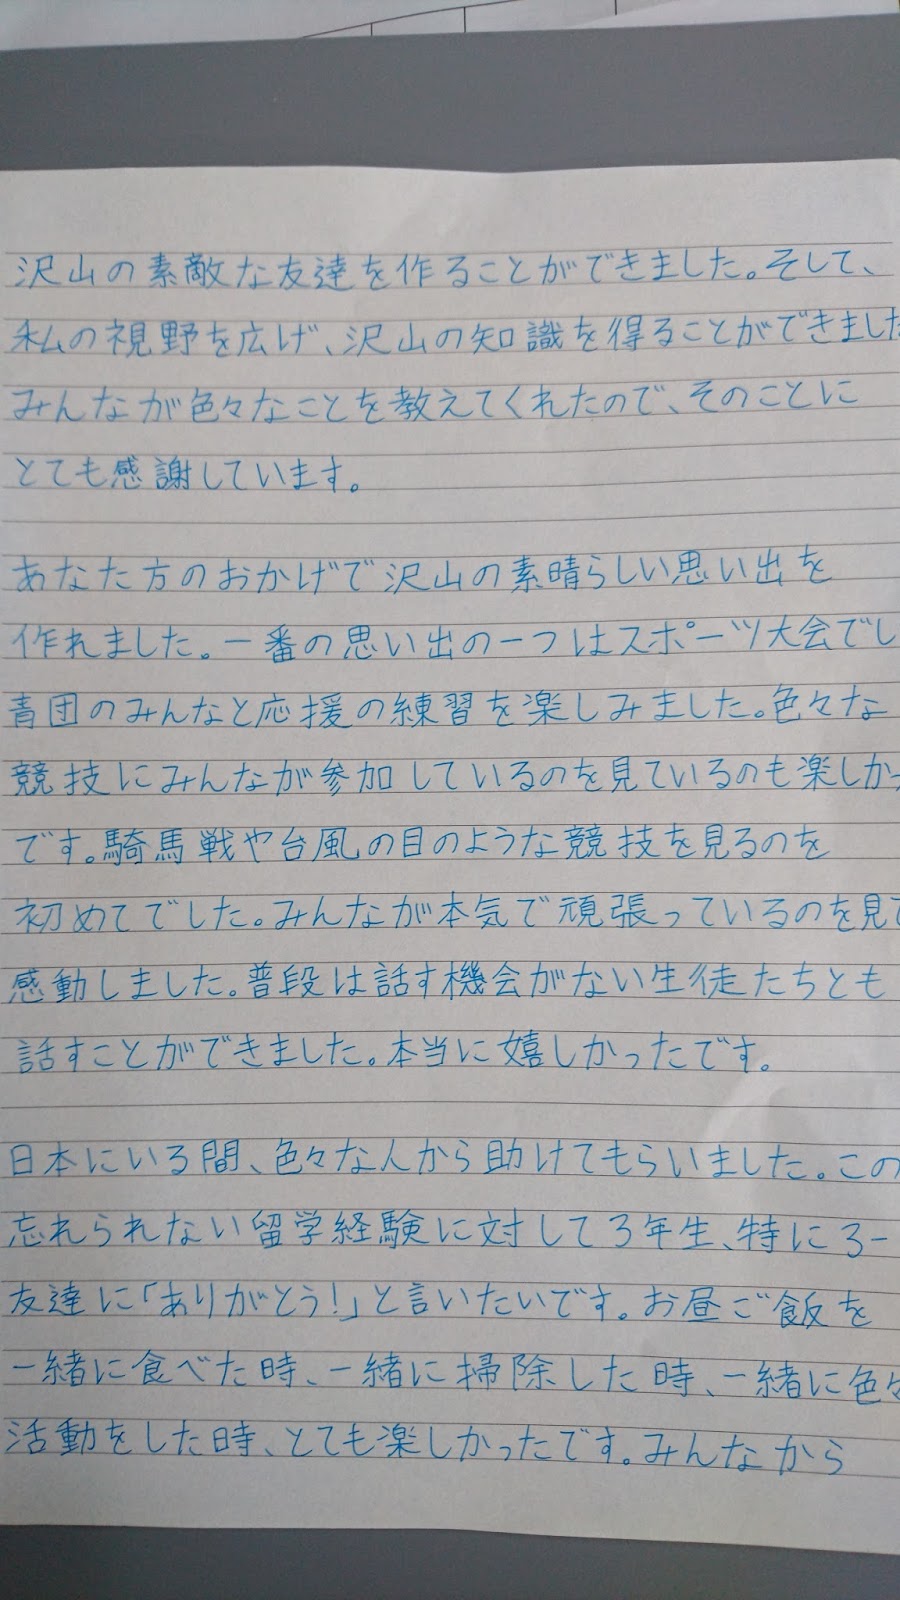 沢山の素敵な友達を作ることができました。そして、
私の視野を広げ、沢山の知識を得ることができました
みんなが色々なことを教えてくれたので、そのことに
とても感謝しています。
あなた方のおかげで沢山の素晴らしい思い出を
作れました。一番の思い出の一つはスポーツ大会でし
青団のみんなと応援の練習を楽しみました。色々な
競技にみんなが参加しているのを見ているのも楽しかっ
です。騎馬戦や台風の目のような競技を見るのを
初めてでした。みんなが本気で頑張っているのを見て
感動しました。普段は話す機会がない生徒たちとも
話すことができました。本当に嬉しかったです。
日本にいる間、色々な人から助けてもらいました。この
忘れられない留学経験に対して3年生、特に3-
友達に「ありがとう!」と言いたいです。お昼ご飯を
一緒に食べた時、一緒に掃除した時、一緒に色々
活動をした時、とても楽しかったです。みんなから